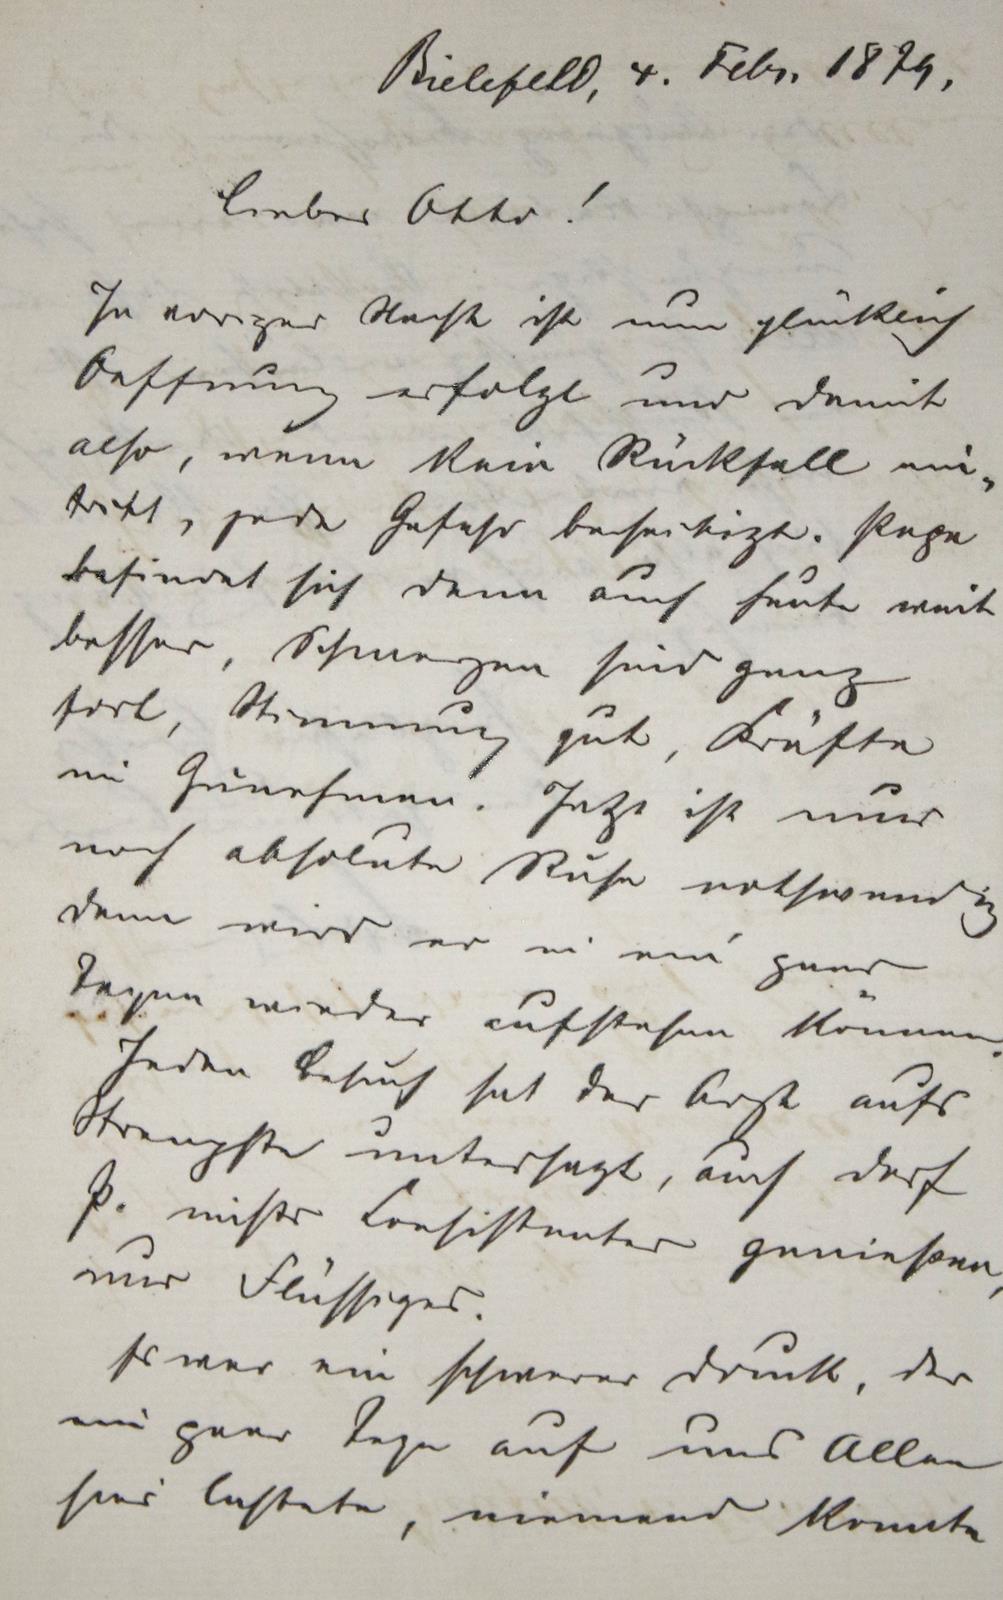 Bielefeld, 4. Febr. 1879.
Lieber Otto!
In voriger Nacht ist nun glücklich
Oeffnung erfolgt und damit
also, wenn kein Rückfall ein-
tritt, jede Gefahr beseitigt. Papa
befindet sich denn auch heute weit
besser, Schmerzen sind ganz
fort, Stimmung gut, Kräfte
im Zunehmen. Jetzt ist nur
noch absolute Ruhe nothwendig
dann wird er in ein paar
Tagen wieder aufstehen können.
Jeden Besuch hat der Arzt aufs
Strengste untersagt, auch darf
P. nichts Consistentes genießen,
nur Flüssiges.
Es war ein schwerer Druck, der
ein paar Tage auf uns Allen
hier lastete, niemand konnte